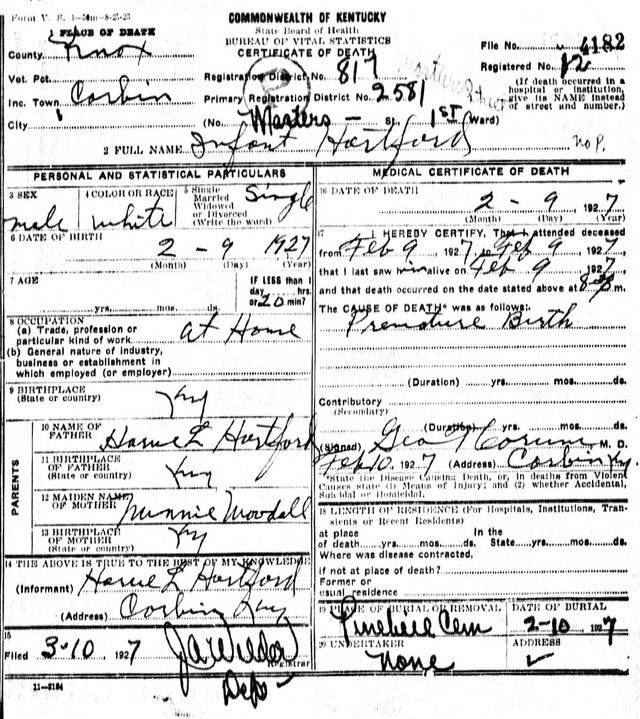 Form V. S. 1-50m-8-25-23
COMMONWEALTH OF KENTUCKY
State Board of Health
BUREAU OF VITAL STATISTICS
CERTIFICATE OF DEATH
1 PLACE OF DEATH
County Knox
Vot. Pct.
Inc. Town Corbin
City
File No. 4182
Registered No. 12
(If death occurred in a hospital or institution, give its NAME instead of street and number.)
Registration District No. 817
Primary Registration District No. 2581
(No. Masters - St. 1ST Ward)
2 FULL NAME Infant Hartford
no P.
PERSONAL AND STATISTICAL PARTICULARS
3 SEX male
4 COLOR OR RACE white
5 Single Married Widowed or Divorced (Write the word) Single
6 DATE OF BIRTH 2 - 9 1927
(Month) (Day) (Year)
7 AGE
yrs. mos. ds.
IF LESS than 1 day hrs. or 20 min?
8 OCCUPATION
(a) Trade, profession or particular kind of work at Home
(b) General nature of industry, business or establishment in which employed (or employer)
9 BIRTHPLACE
(State or country) Ky
PARENTS
10 NAME OF FATHER Hartford
11 BIRTHPLACE OF FATHER
(State or country) Ky
12 MAIDEN NAME OF MOTHER Minnie Woodall
13 BIRTHPLACE OF MOTHER
(State or country) Ky
14 THE ABOVE IS TRUE TO THE BEST OF MY KNOWLEDGE
(Informant) Hartford
(Address) Corbin Ky
15
Filed 3-10 1927 Registrar
Dep -
11-3184
MEDICAL CERTIFICATE OF DEATH
16 DATE OF DEATH
2 - 9 1927
(Month) (Day) (Year)
17 I HEREBY CERTIFY, That I attended deceased
from Feb 9 1927 to Feb 9 1927
that I last saw him alive on Feb 9 1927
and that death occurred on the date stated above at m.
The CAUSE OF DEATH* was as follows:
Premature Birth
(Duration) yrs. mos. ds.
Contributory
(Secondary)
(Duration) yrs. mos. ds.
(Signed) Geo M. D.
Feb 10, 1927 (Address) Corbin Ky.
*State the Disease Causing Death, or, in deaths from Violent Causes state (1) Means of Injury; and (2) whether Accidental, Suicidal or Homicidal.
18 LENGTH OF RESIDENCE (For Hospitals, Institutions, Transients or Recent Residents)
at place of death yrs. mos. ds. In the State yrs. mos. ds.
Where was disease contracted,
if not at place of death?
Former or usual residence
19 PLACE OF BURIAL OR REMOVAL
Cem
DATE OF BURIAL
2-10 1927
20 UNDERTAKER
None
ADDRESS